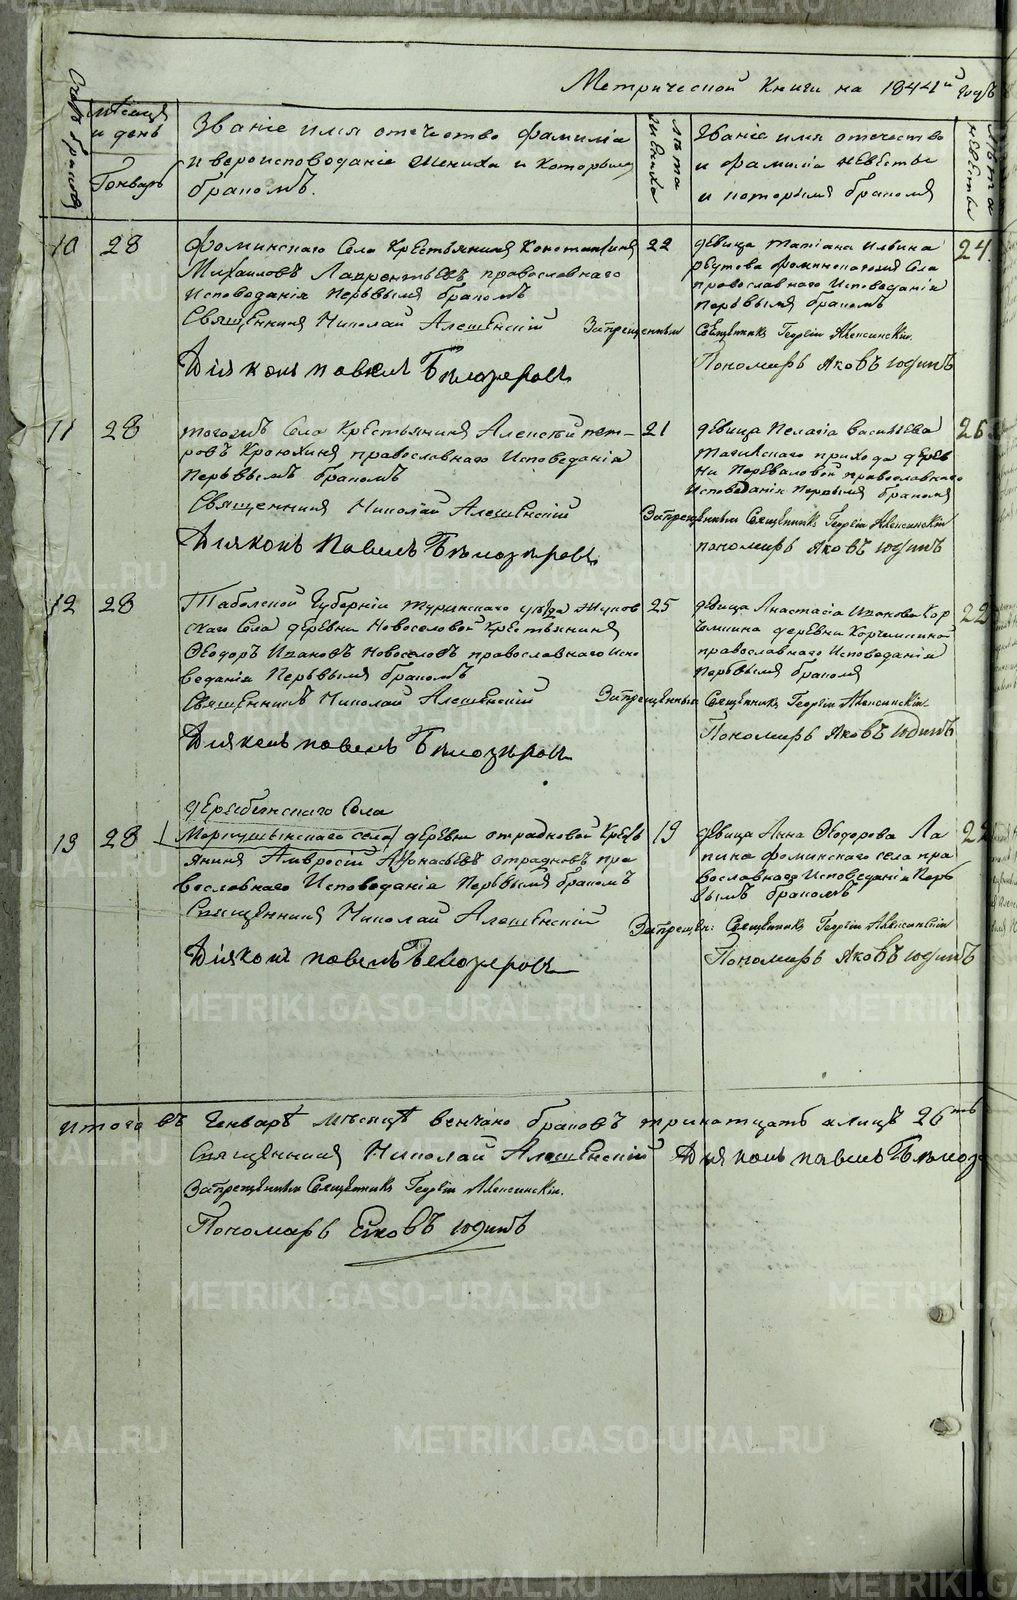 Метрической Книги на 1844й годъ
Счетъ браковъ
Мѣсяцъ и день
Генварь
Званіе имя отечество фамилія
и вероисповоданіе жениха и которымъ
бракомъ.
лѣта жениха
Званіе имя отечество
и фамилія невесты
и которымъ бракомъ
Лѣта невесты
10 28 Фоминскаго Села Крестьянинъ Константинъ 22
Михаиловъ Лаврентьевъ православнаго
исповоданія Первымъ бракомъ
Священникъ Николай
Діяконъ павелъ Бѣлозеровъ
девица Татіана Ильина 24
Фоминскаго Села
православнаго Исповоданія
первымъ бракомъ
Запрещенный Священникъ Георгій Алексинскій.
Пономарь Яковъ Юдинъ
11 28 тогожъ Села Крестьянинъ Алексѣй пет-
ровъ Крюхинъ православнаго Исповеданія 21
Первымъ бракомъ
Священникъ Николай
Діяконъ Павелъ Бѣлозеровъ
девица Пелагія Васильева 26
прихода дерев
ни Переваловой православнаго
Исповеданія Первымъ бракомъ
Запрещенный Священникъ Георгій Алексинскій
пономарь Яковъ Юдинъ
12 28 Таболской Губерніи Туринскаго уѣзда Жуков 25
скаго Села деревни Новоселовой Крестьянинъ
Ѳеодоръ Ивановъ Новоселовъ православнаго Испо
веданія Первымъ бракомъ
Священникъ Николай
Діяконъ павелъ Бѣлозеровъ
девица Анастасія Иванова Кор 22
чемкина деревни Корчемкиной
православнаго Исповоданія
Первымъ бракомъ
Запрещенный Священникъ Георгій Алексинскій
Пономарь Яковъ Юдинъ
Села
13 28 села деревни отрадновой Кресть 19
янинъ Амвросій Аѳонасьевъ отрадновъ пра
вославнаго Исповоданія Первымъ бракомъ
Священникъ Николай
Діяконъ павелъ Белозеровъ
девица Анна Ѳеодорова Ла 22
пина Фоминскаго села пра
вославнаго Исповеданія Пер
вымъ бракомъ
Запрещен: Священникъ Георгій Алексинскій
Пономарь Яковъ Юдинъ
Итого въ Генварѣ мѣсяцѣ венчано браковъ тринатцать а лицъ 26ть
Священникъ Николай Діяконъ павелъ Бѣлоз
Запрещенный Священникъ Георгій Алексинскій.
Пономарь Яковъ Юдинъ
METRIKI.GASO-URAL.RU